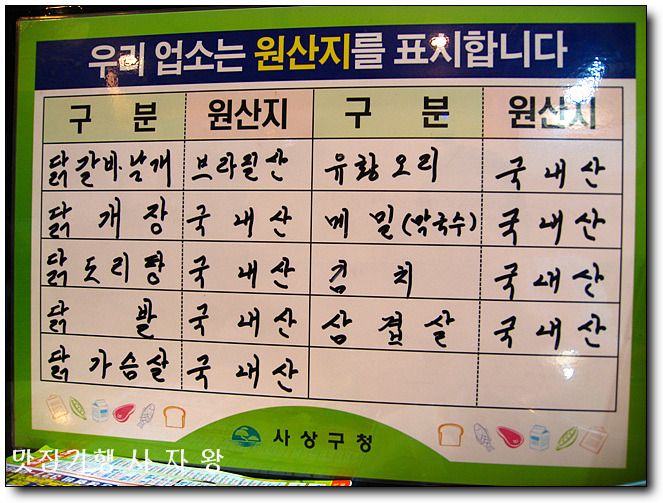 우리 업소는 원산지를 표시합니다
구 분 원산지 구 분 원산지
닭갈비.날개 브라질산 유황오리 국내산
닭개장 국내산 메밀(막국수) 국내산
닭도리탕 국내산 김치 국내산
닭발 국내산 삼겹살 국내산
닭가슴살 국내산
사상구청
맛집기행 사자왕